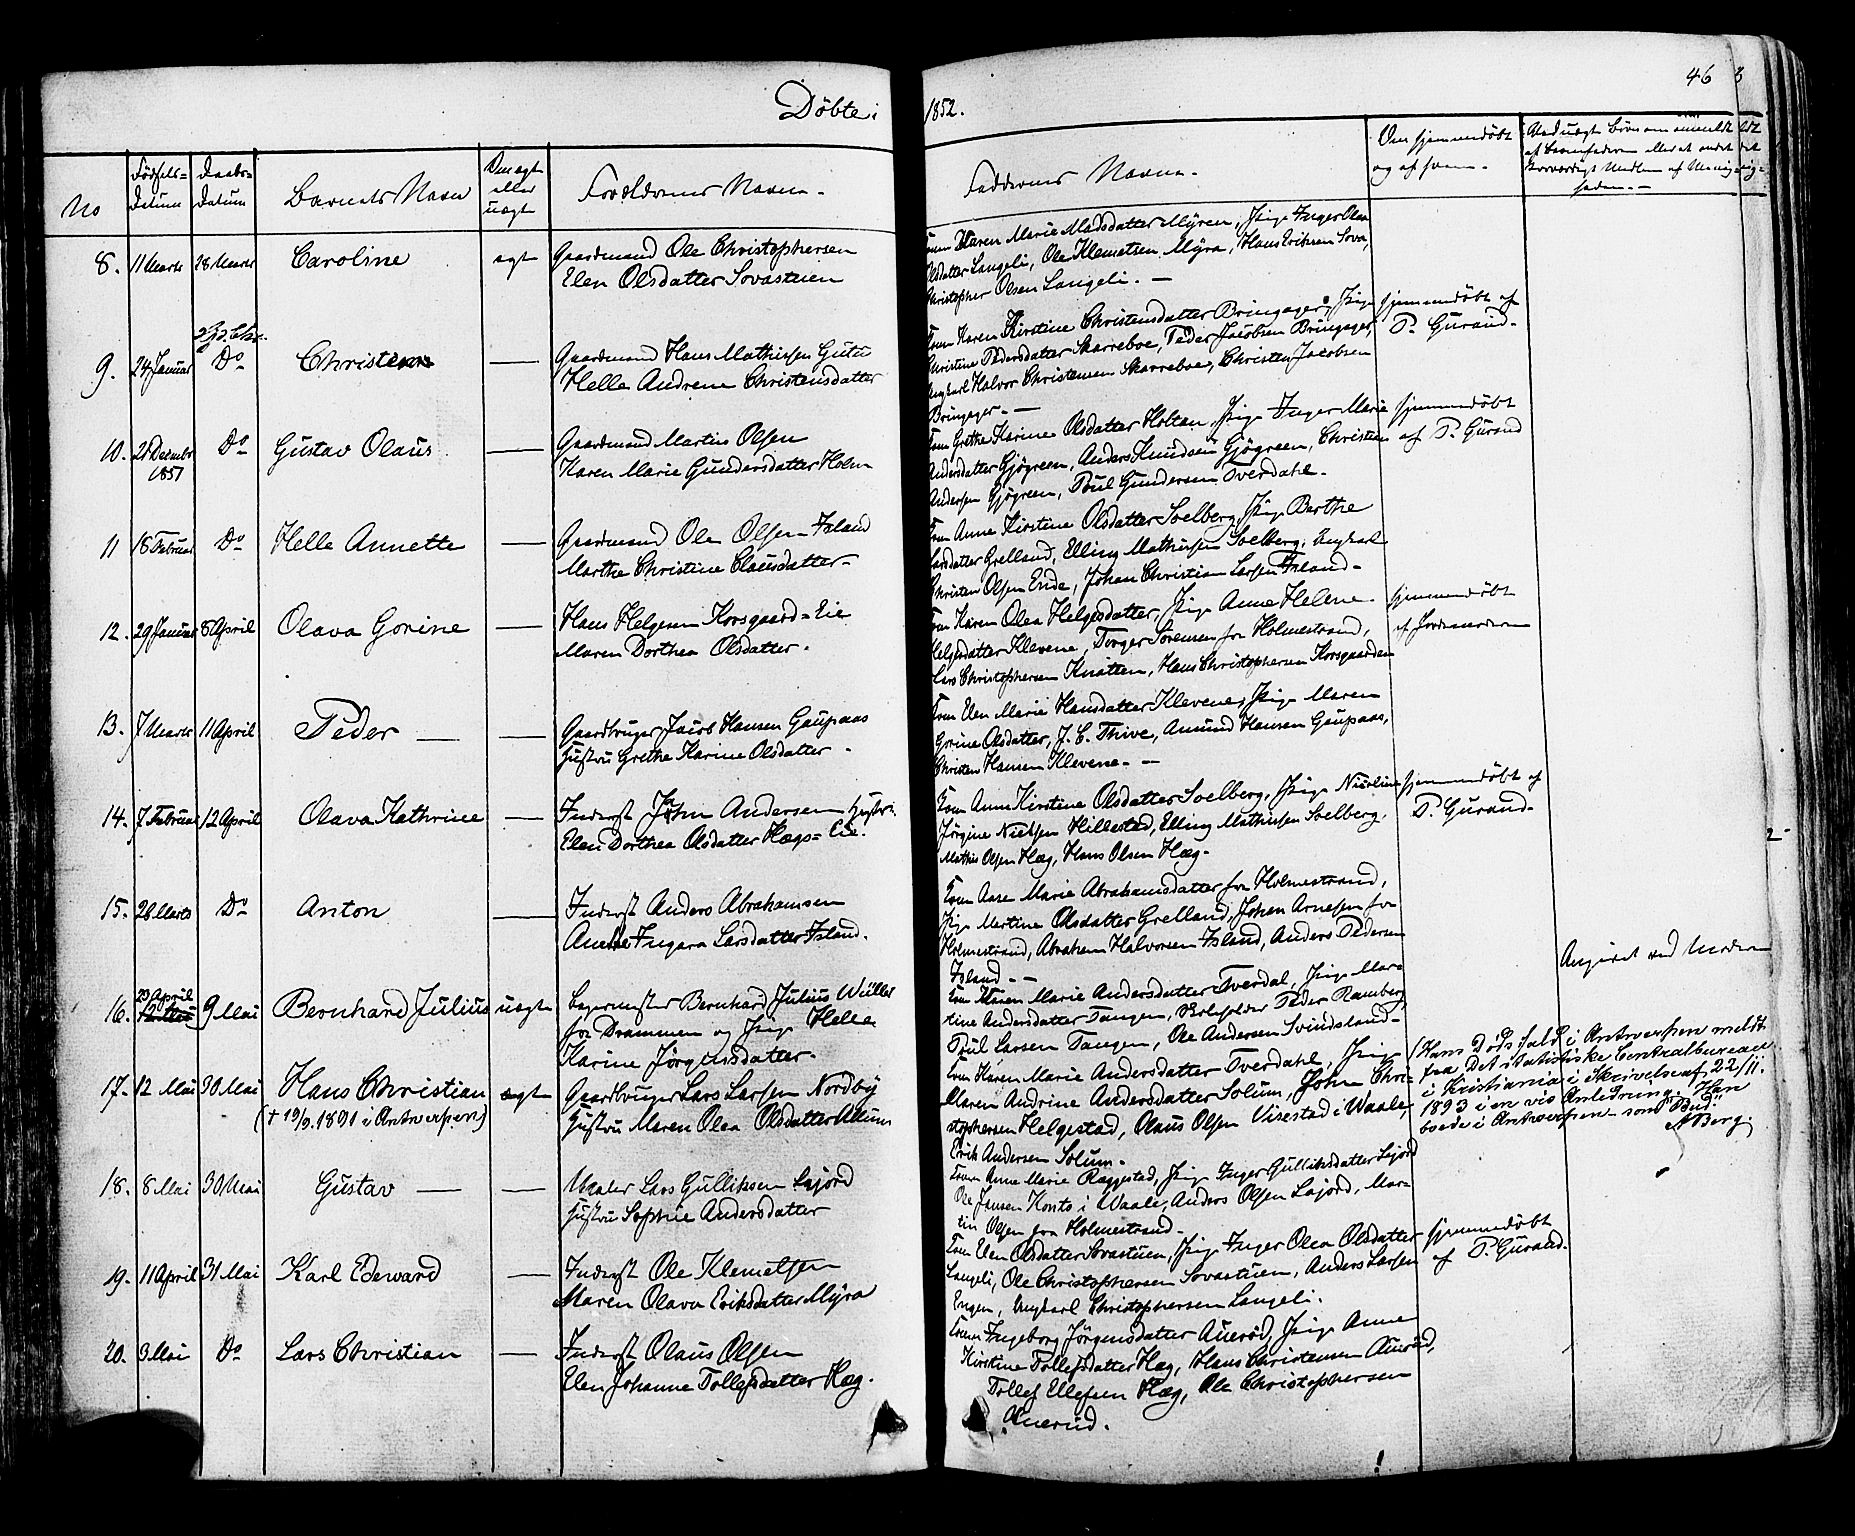 Döbte i 1852.
46
No
Födsels-Datum
Daabs-Datum
Barnets Navn
Om ægte eller uægte
Forældrenes Navne.
Faddernes Navne.
Om hjemmedöbt og af hvem.
8. 11 Marts 28 Marts Caroline ægte
Gaardmand Ole Christophersen
Elen Olsdatter Sovastuen
Maren Marie Madsdatter Myren, Pige Inger Olea
Olsdatter Langeli, Ole Klemetsen Myra, Hans Eriksen Sova,
Christopher Olsen Langeli. —
9. 24 Januar Do Christen —
Gaardmand Hans Mathissen Gutu
Helle Andrene Christensdatter
Kone Karen Kirstine Christensdatter Bringager, Pige
Christine Pedersdatter Skarreboe, Peder Jacobsen Bringager,
Ungkarl Halvor Christensen Skarreboe, Christen Jacobsen
Bringager. —
hjemmedöbt af
P. Gurand.
10. 28 December 1851 Do Gustav Olaus —
Gaardmand Martin Olsen
Karen Marie Gundersdatter Holm
Kone Grethe Karine Olsdatter Holtan, Pige Inger Marie
Andersdatter Gjøgreen, Anders Knudsen Gjøgreen, Christian
Andersen Gjøgreen, Poul Gundersen Tverdahl.
hjemmedöbt
af P. Gurand
11 18 Februar Do Helle Annette —
Gaardmand Ole Olsen Island
Marthe Christine Clausdatter.
Kone Anne Kirstine Olsdatter Solberg, Pige Berthe
Larsdatter Grelland, Elling Mathissen Solberg, Ungkarl
Christen Olsen Ende, Johan Christian Larsen Island.
12. 29 Januar 8 April Olava Gorine —
Hans Helgesen Korsgaard-Eie
Maren Dorthea Olsdatter.
Kone Karen Olea Helgesdatter, Pige Anne Helene
Helgesdatter Klevene, Torger Sörensen fra Holmestrand,
Lars Christophersen Knatten, Hans Christophersen Korsgaarden
hjemmedöbt
af Jordemoderen
13. 7 Marts 11 April Peder — —
Gaardbruger Jacob Hansen Gaupaas
Hustru Grethe Karine Olsdatter.
Kone Elen Marie Hansdatter Klevene, Pige Maren
Gorine Olsdatter, J. C. Thive, Amund Hansen Gaupaas,
Christen Hansen Klevene. —
14. 7 Februar 12 April Olava Kathrine —
Inderst John Andersen Hustru
Elen Dorthea Olsdatter Hægs-Eie.
Kone Anne Kirstine Olsdatter Solberg, Pige Nicoline
Jörgine Nielsen Hillestad, Elling Mathissen Solberg,
Mathis Olsen Hæg, Hans Olsen Hæg.
hjemmedöbt af
P. Gurand.
15. 28 Marts Do Anton —
Inderst Anders Abrahamsen
Ingara Larsdatter Island.
Kone Anne Marie Abrahamsdatter fra Holmestrand,
Pige Martine Olsdatter Grelland, Johan Arnesen fra
Holmestrand, Abraham Halvorsen Island, Anders Pedersen
Island. —
16. 29 April 9 Mai Bernhard Julius uægte
Bagermester Bernhard Julius Wüller
fra Drammen og Pige Helle
Karine Jörgensdatter.
Kone Karen Marie Andersdatter Tverdal, Pige Mar-
tine Andersdatter Tangen, Peder Ramberg,
Poul Larsen Tangen, Ole Andersen Svindsland.
Angivet ved Moderen
17. 12 Mai 30 Mai Hans Christian ægte
(† 19/9 1891 i Antwerpen)
Gaardbruger Lars Larsen Nordby
Hustru Maren Olea Olsdatter Allum
Kone Karen Marie Andersdatter Tverdahl, Pige
Maren Andrine Andersdatter Solum, John Chri-
stophersen Helgestad, Olaus Olsen Viresstad i Waale,
Erik Andersen Solum.
(Hans Dödsfald i Antwerpen meldt
fra Det statistiske Centralbureau
i Kristiania i Skrivelse af 22/11
1893 i en vis Anledning. Han
boede i Antwerpen som Bud.
A Berg.
18. 8 Mai 30 Mai Gustav — —
Maler Lars Gulliksen Lajord
Hustru Sophie Andersdatter
Kone Anne Marie Raggestad, Pige Inger Gulliksdatter Lajord
Ole Jansen Konto i Waale, Anders Olsen Lajord, Mar-
tin Olsen fra Holmestrand.
19. 11 April 31 Mai Karl Edeward —
Inderst Ole Klemetsen
Maren Olava Eriksdatter Myra
Kone Elen Olsdatter Sovastuen, Pige Inger Olea Olsdatter
Langeli, Ole Christophersen Sovastuen, Anders Larsen
Engen, Ungkarl Christophersen Langeli.
hjemmedöbt
af P. Gurand.
20. 3 Mai Do Lars Christian —
Inderst Olaus Olsen
Elen Johanne Tollefsdatter Hæg.
Kone Ingeborg Jörgensdatter Auerød, Pige Anne
Kirstine Tollefsdatter Hæg, Hans Christensen Auerød,
Tollef Ellefsen Hæg, Ole Christophersen
Auerud.